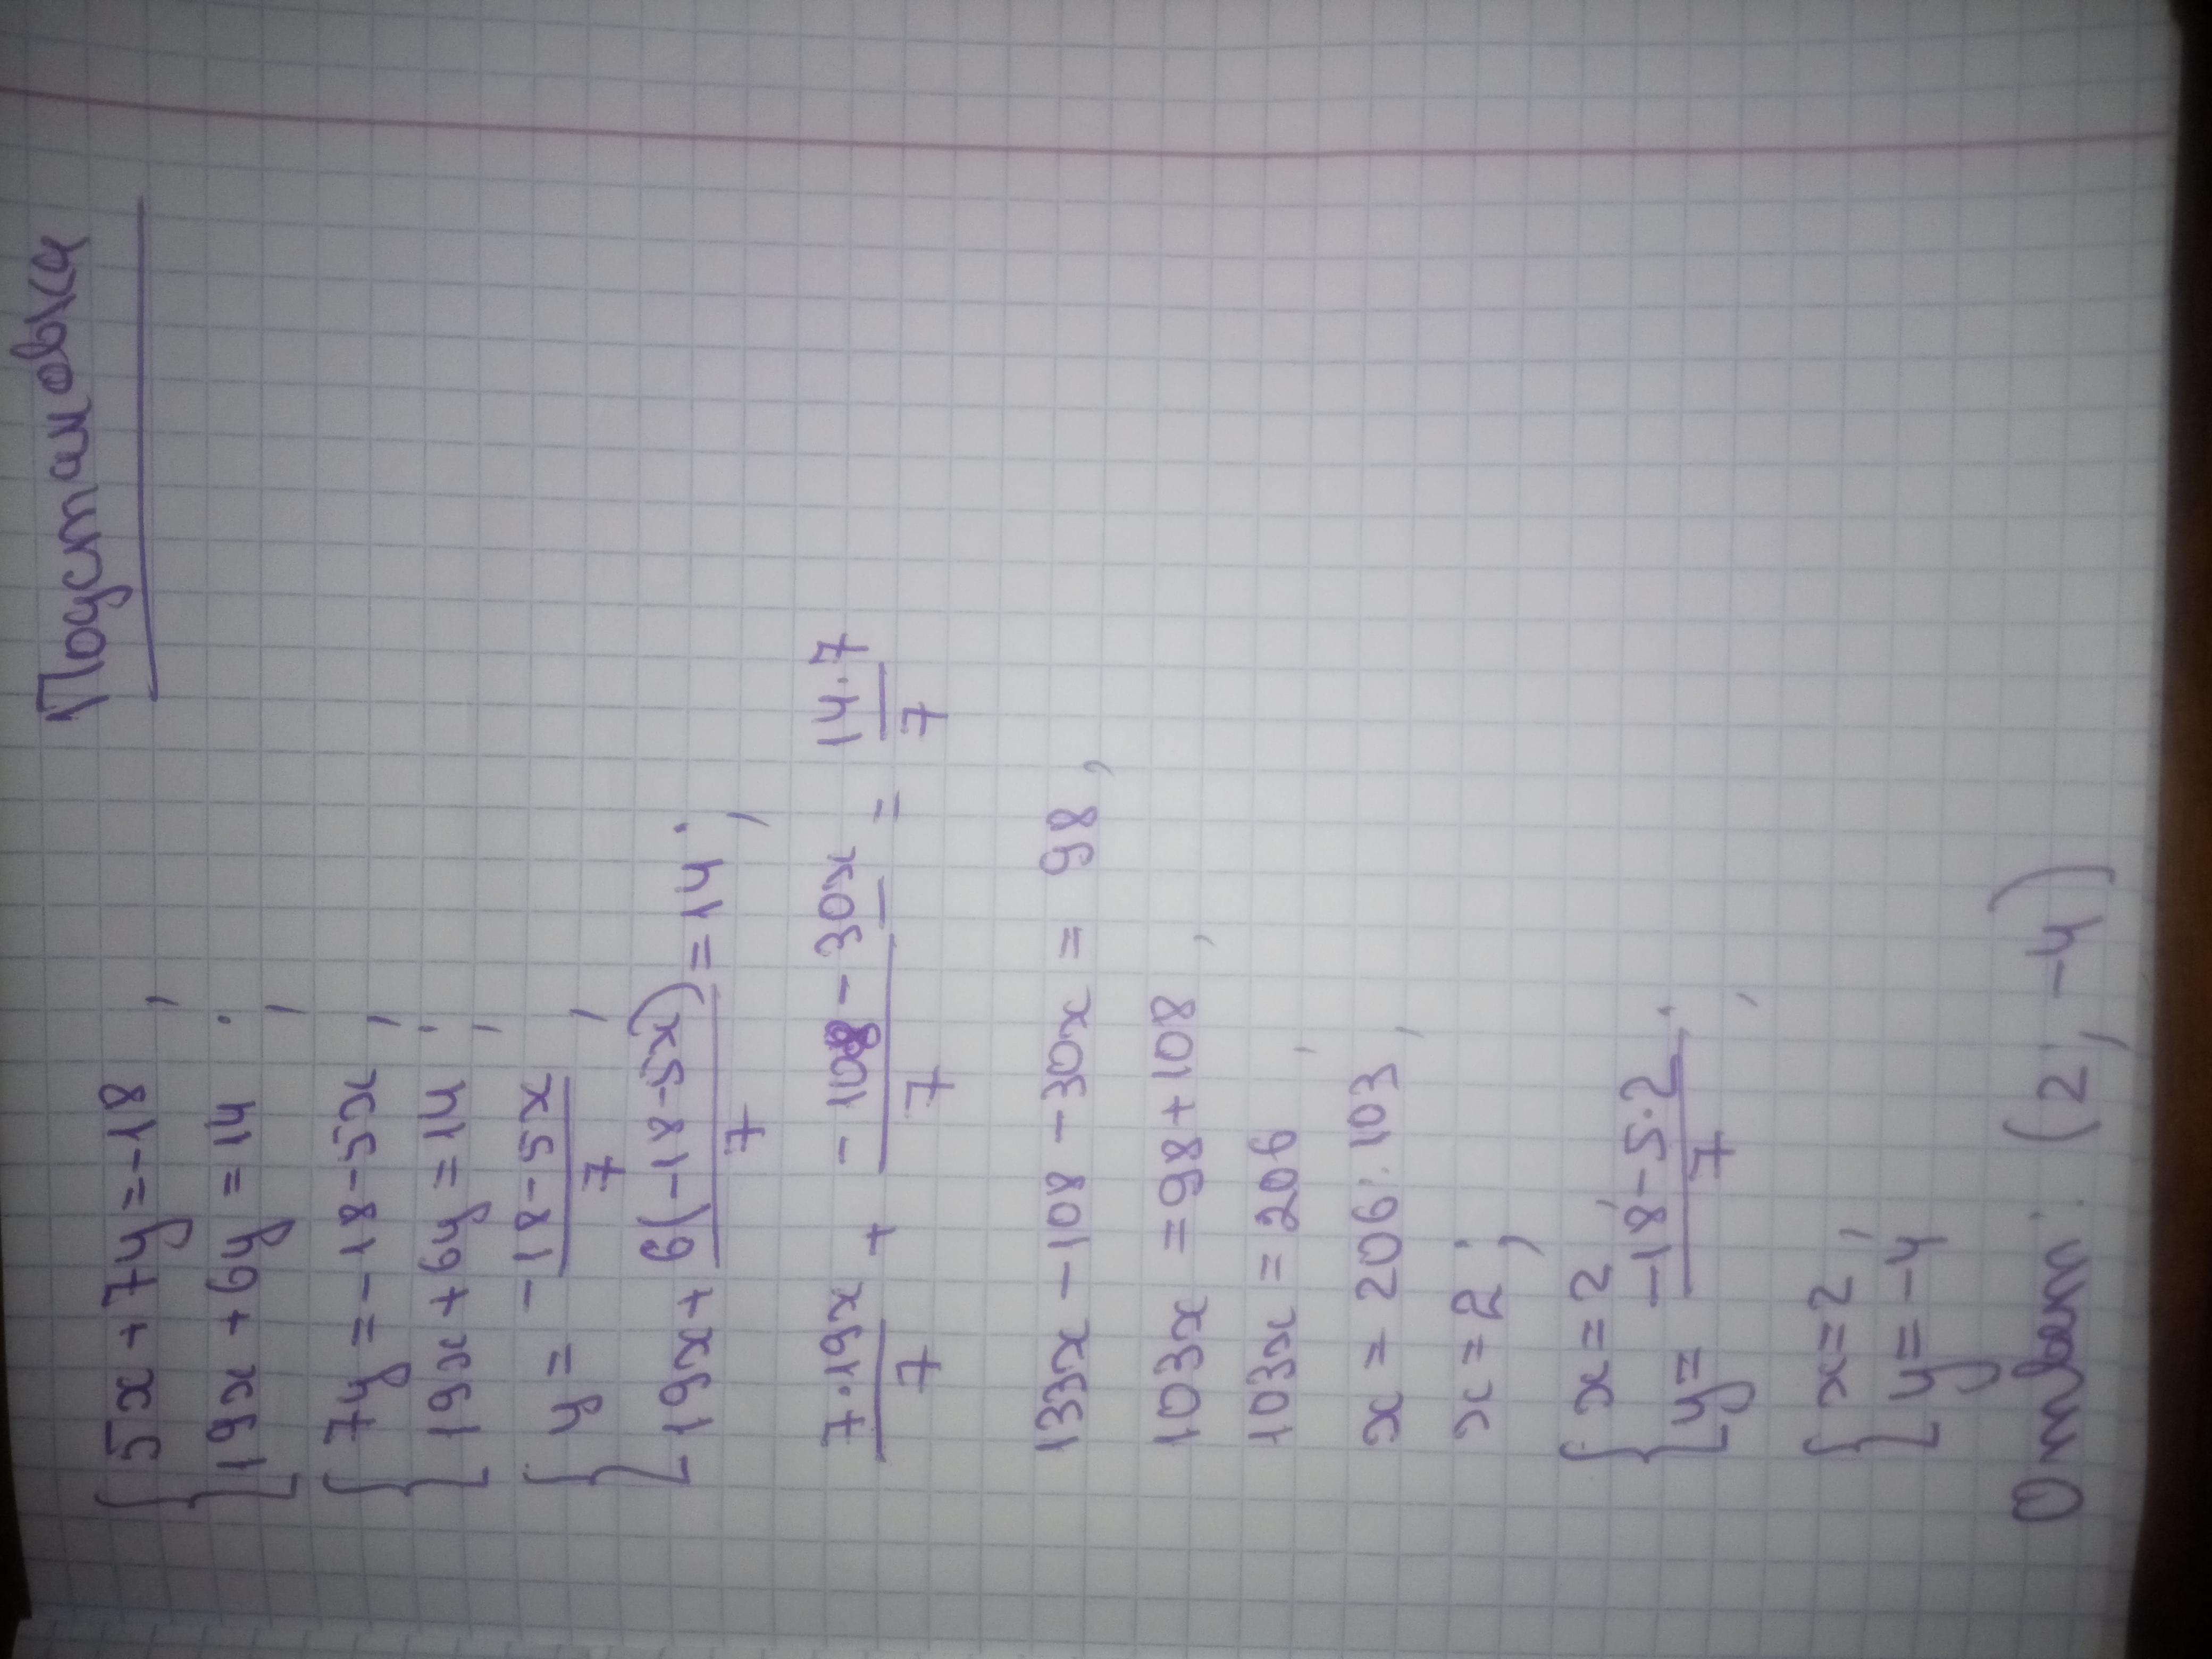 Подстановка
{ 5x + 7y = -18,
19x + 6y = 14;
{ 7y = -18 - 5x,
19x + 6y = 14;
{ y = \frac{-18 - 5x}{7},
19x + \frac{6(-18 - 5x)}{7} = 14;
\frac{7·19x}{7} + \frac{-108 - 30x}{7} = \frac{14·7}{7}
133x - 108 - 30x = 98,
103x = 98 + 108,
103x = 206,
x = 206:103,
x = 2;
{ x = 2,
y = \frac{-18 - 5·2}{7};
{ x = 2,
y = -4
Ответ: (2; -4)